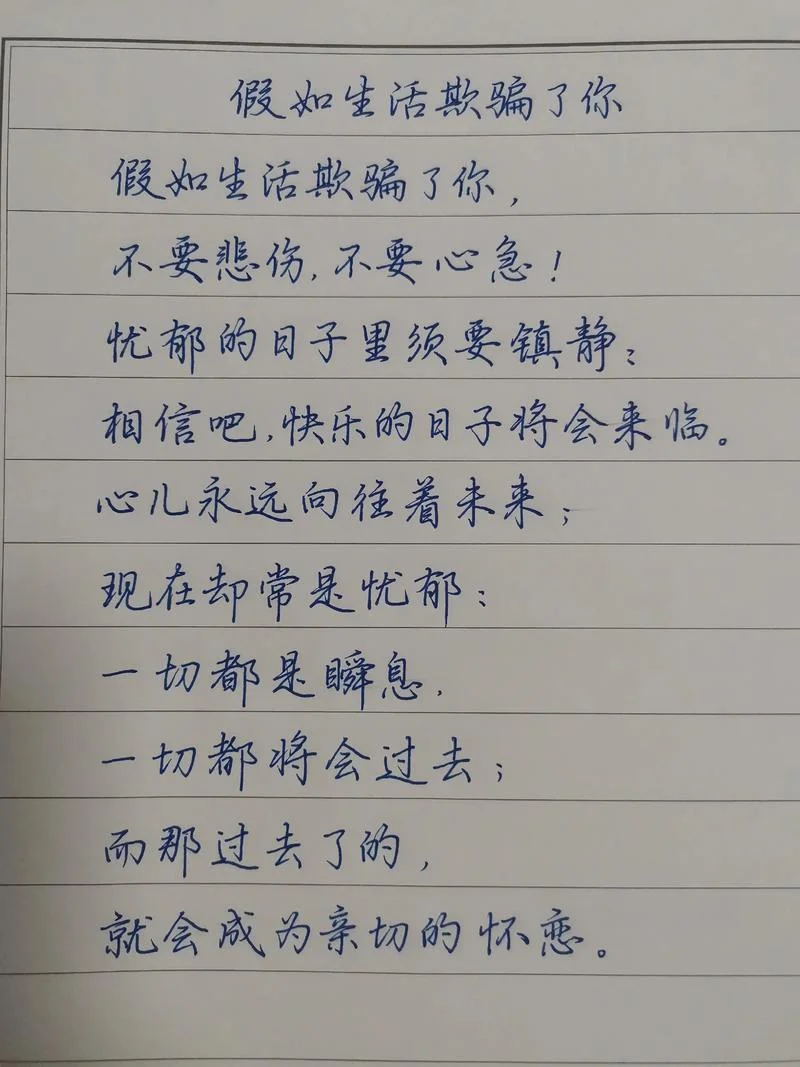 假如生活欺骗了你
假如生活欺骗了你，
不要悲伤，不要心急！
忧郁的日子里须要镇静：
相信吧，快乐的日子将会来临。
心儿永远向往着未来；
现在却常是忧郁：
一切都是瞬息，
一切都将会过去；
而那过去了的，
就会成为亲切的怀恋。